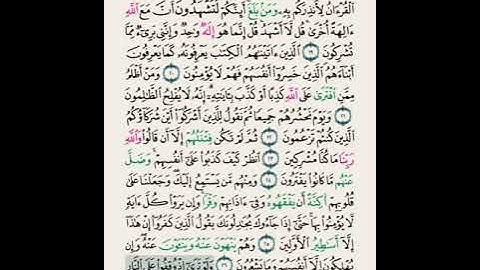 ٱلْقُرْءَانُ لِأُنذِرَكُم بِهِۦ وَمَنۢ بَلَغَ أَئِنَّكُمْ لَتَشْهَدُونَ أَنَّ مَعَ ٱللَّهِ
ءَالِهَةً أُخْرَىٰ قُل لَّآ أَشْهَدُ قُلْ إِنَّمَا هُوَ إِلَٰهٌ وَٰحِدٌ وَإِنَّنِى بَرِىٓءٌ مِّمَّا
تُشْرِكُونَ ١٩ ٱلَّذِينَ ءَاتَيْنَٰهُمُ ٱلْكِتَٰبَ يَعْرِفُونَهُۥ كَمَا يَعْرِفُونَ
أَبْنَآءَهُمُ ٱلَّذِينَ خَسِرُوٓا۟ أَنفُسَهُمْ فَهُمْ لَا يُؤْمِنُونَ ٢٠ وَمَنْ أَظْلَمُ
مِمَّنِ ٱفْتَرَىٰ عَلَى ٱللَّهِ كَذِبًا أَوْ كَذَّبَ بِـَٔايَٰتِهِۦٓ إِنَّهُۥ لَا يُفْلِحُ ٱلظَّٰلِمُونَ
٢١ وَيَوْمَ نَحْشُرُهُمْ جَمِيعًا ثُمَّ نَقُولُ لِلَّذِينَ أَشْرَكُوٓا۟ أَيْنَ شُرَكَآؤُكُمُ
ٱلَّذِينَ كُنتُمْ تَزْعُمُونَ ٢٢ ثُمَّ لَمْ تَكُن فِتْنَتُهُمْ إِلَّآ أَن قَالُوا۟ وَٱللَّهِ
رَبِّنَا مَا كُنَّا مُشْرِكِينَ ٢٣ ٱنظُرْ كَيْفَ كَذَبُوا۟ عَلَىٰٓ أَنفُسِهِمْ وَضَلَّ
عَنْهُم مَّا كَانُوا۟ يَفْتَرُونَ ٢٤ وَمِنْهُم مَّن يَسْتَمِعُ إِلَيْكَ وَجَعَلْنَا عَلَىٰ
قُلُوبِهِمْ أَكِنَّةً أَن يَفْقَهُوهُ وَفِىٓ ءَاذَانِهِمْ وَقْرًا وَإِن يَرَوْا۟ كُلَّ ءَايَةٍ
لَّا يُؤْمِنُوا۟ بِهَا حَتَّىٰٓ إِذَا جَآءُوكَ يُجَٰدِلُونَكَ يَقُولُ ٱلَّذِينَ كَفَرُوٓا۟ إِنْ هَٰذَآ
إِلَّآ أَسَٰطِيرُ ٱلْأَوَّلِينَ ٢٥ وَهُمْ يَنْهَوْنَ عَنْهُ وَيَنْـَٔوْنَ عَنْهُ وَإِن
يُهْلِكُونَ إِلَّآ أَنفُسَهُمْ وَمَا يَشْعُرُونَ ٢٦ وَلَوْ تَرَىٰٓ إِذْ وُقِفُوا۟ عَلَى ٱلنَّارِ